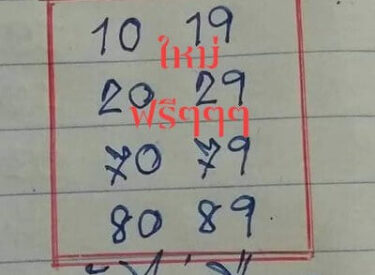 10 19
ใหม่
20 29
ฟรีๆๆๆ
70 79
80 89